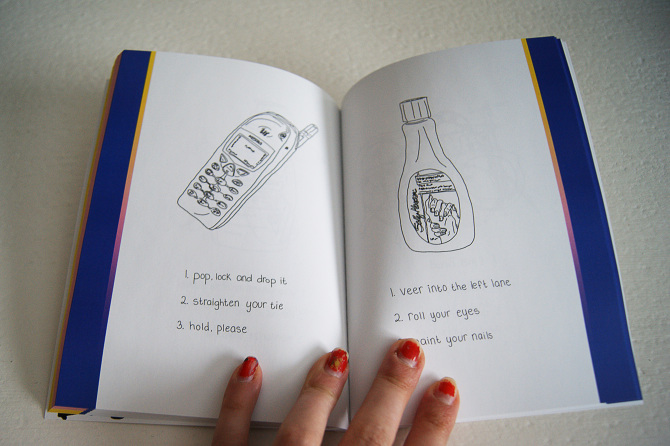 1. pop, lock and drop it
2. straighten your tie
3. hold, please
1. veer into the left lane
2. roll your eyes
aint your nails